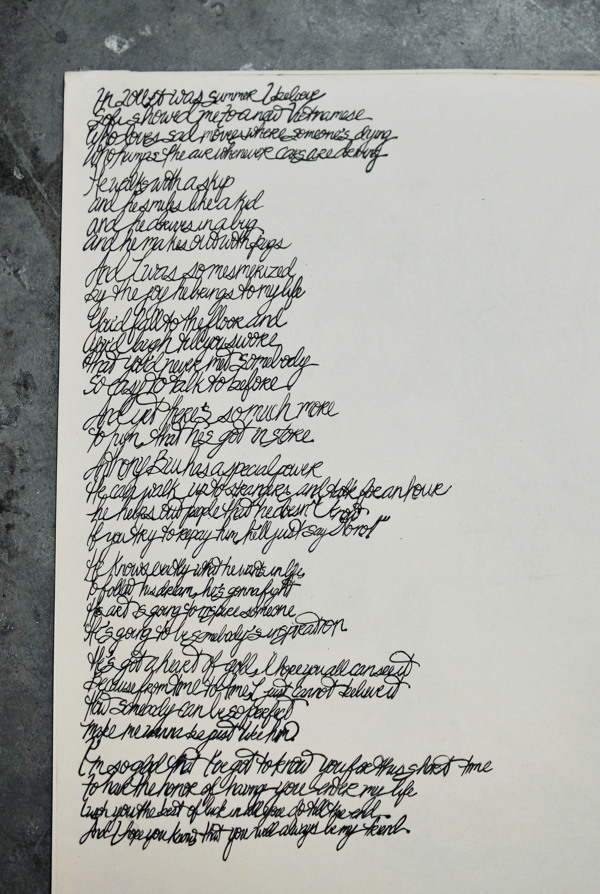 In 2011 it was summer I believe
Sofie showed me to a new Vietnamese
Who loves sad movies where someone's dying
Who humps the air whenever cars are driving
He walks with a skip
and he smiles like a kid
and he drives in a bug
and he makes out with pugs
And I was so mesmerized
by the joy he brings to my life
You'd fall to the floor and
You'd laugh till you swore
that you'd never met somebody
So easy to talk to before
And yet there's so much more
to him that he's got in store
Anthony has a special power
He can walk up to strangers and talk for an hour
he helps out people that he doesn't know
If you try to repay him he'll just say "
He knows exactly what he wants in life
to follow his dream, he's gonna fight
His art is going to inspire someone
He's going to be somebody's inspiration
He's got a heart of gold, I hope you all can see it
Because from time to time I just cannot believe it
How somebody can be so perfect
make me wanna be just like him
I'm so glad that I've got to know you for this short time
to have the honor of having you enter my life
I wish you the best of luck in all you do till the end
And I hope you know that you will always be my friend